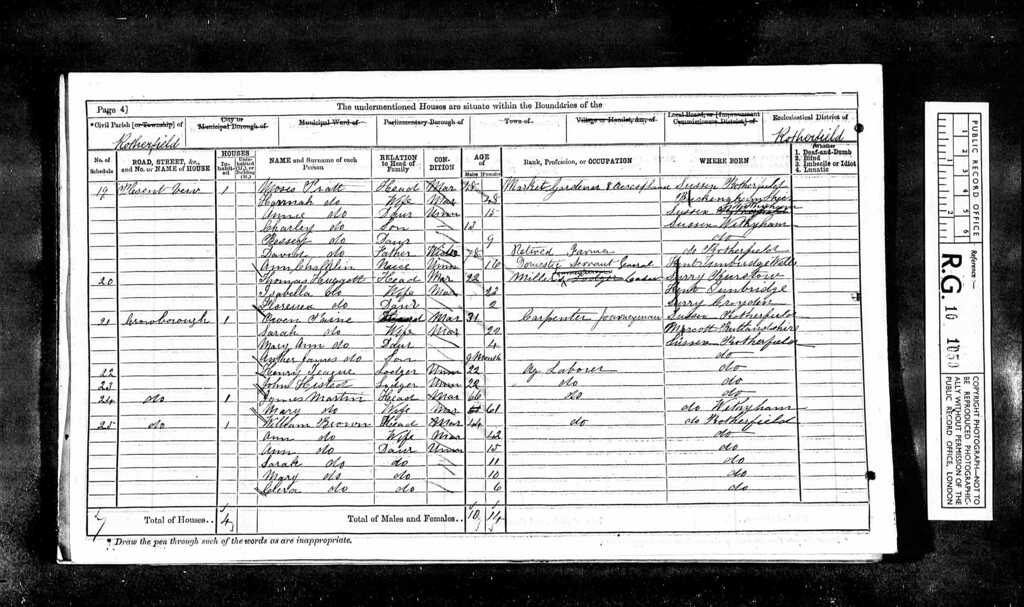 Page 4]
The undermentioned Houses are situate within the Boundaries of the
*Civil Parish [or Township] of
City or Municipal Borough of
Municipal Ward of
Parliamentary Borough of
Town of
Village or Hamlet, &c., of
Local Board, or [Improvement Commissioners District] of
Ecclesiastical District of
Rotherfield
Rotherfield
No. of Schedule
ROAD, STREET, &c., and No. or NAME of HOUSE
HOUSES
Inhabited
Uninhabited (U.), or Building (B.)
NAME and Surname of each Person
RELATION to Head of Family
CONDITION
AGE of
Males
Females
Rank, Profession, or OCCUPATION
WHERE BORN
Whether
1. Deaf-and-Dumb
2. Blind
3. Imbecile or Idiot
4. Lunatic
19 1 Moses Pratt Head Mar Market Gardener Sussex Rotherfield
Hannah do Wife Mar 48
Annie do Daur Unm 15 Sussex
Charley do Son 13 Sussex Withyham
do Daur 9 do
David do Father 78 Retired Farmer do Rotherfield
Ann Chaplin Niece Unm 16 Domestic Servant General Kent Tunbridge Wells
20 Thomas Head Mar 22 Miller Surry
Isabella do Wife Mar 22 Kent Tunbridge
do Daur 2 Surry Croydon
21 Crowborough 1 Paine Head Mar 31 Carpenter Journeyman Sussex Rotherfield
Sarah do Wife Mar 22
Mary Ann do Daur 4 Sussex Rotherfield
Arther James do Son 9 Month do
22 Henry Lodger Unm 22 Ag Laborer do
23 John Lodger Unm 22 do do
24 do 1 James Martin Head Mar 66 do do
Mary do Wife Mar 61 do Withyham
25 do 1 William Brown Head Mar 44 do do Rotherfield
Ann do Wife Mar 42 do
Ann do Daur Unm 15 do
Sarah do do 11 do
Mary do do 10 do
do do 6 do
Total of Houses.. 4
Total of Males and Females.. 10 14
* Draw the pen through such of the words as are inappropriate.
PUBLIC RECORD OFFICE
1 2 3 4 5 6
Reference :-
R.G. 10
COPYRIGHT PHOTOGRAPH—NOT TO BE REPRODUCED PHOTOGRAPHICALLY WITHOUT PERMISSION OF THE PUBLIC RECORD OFFICE, LONDON